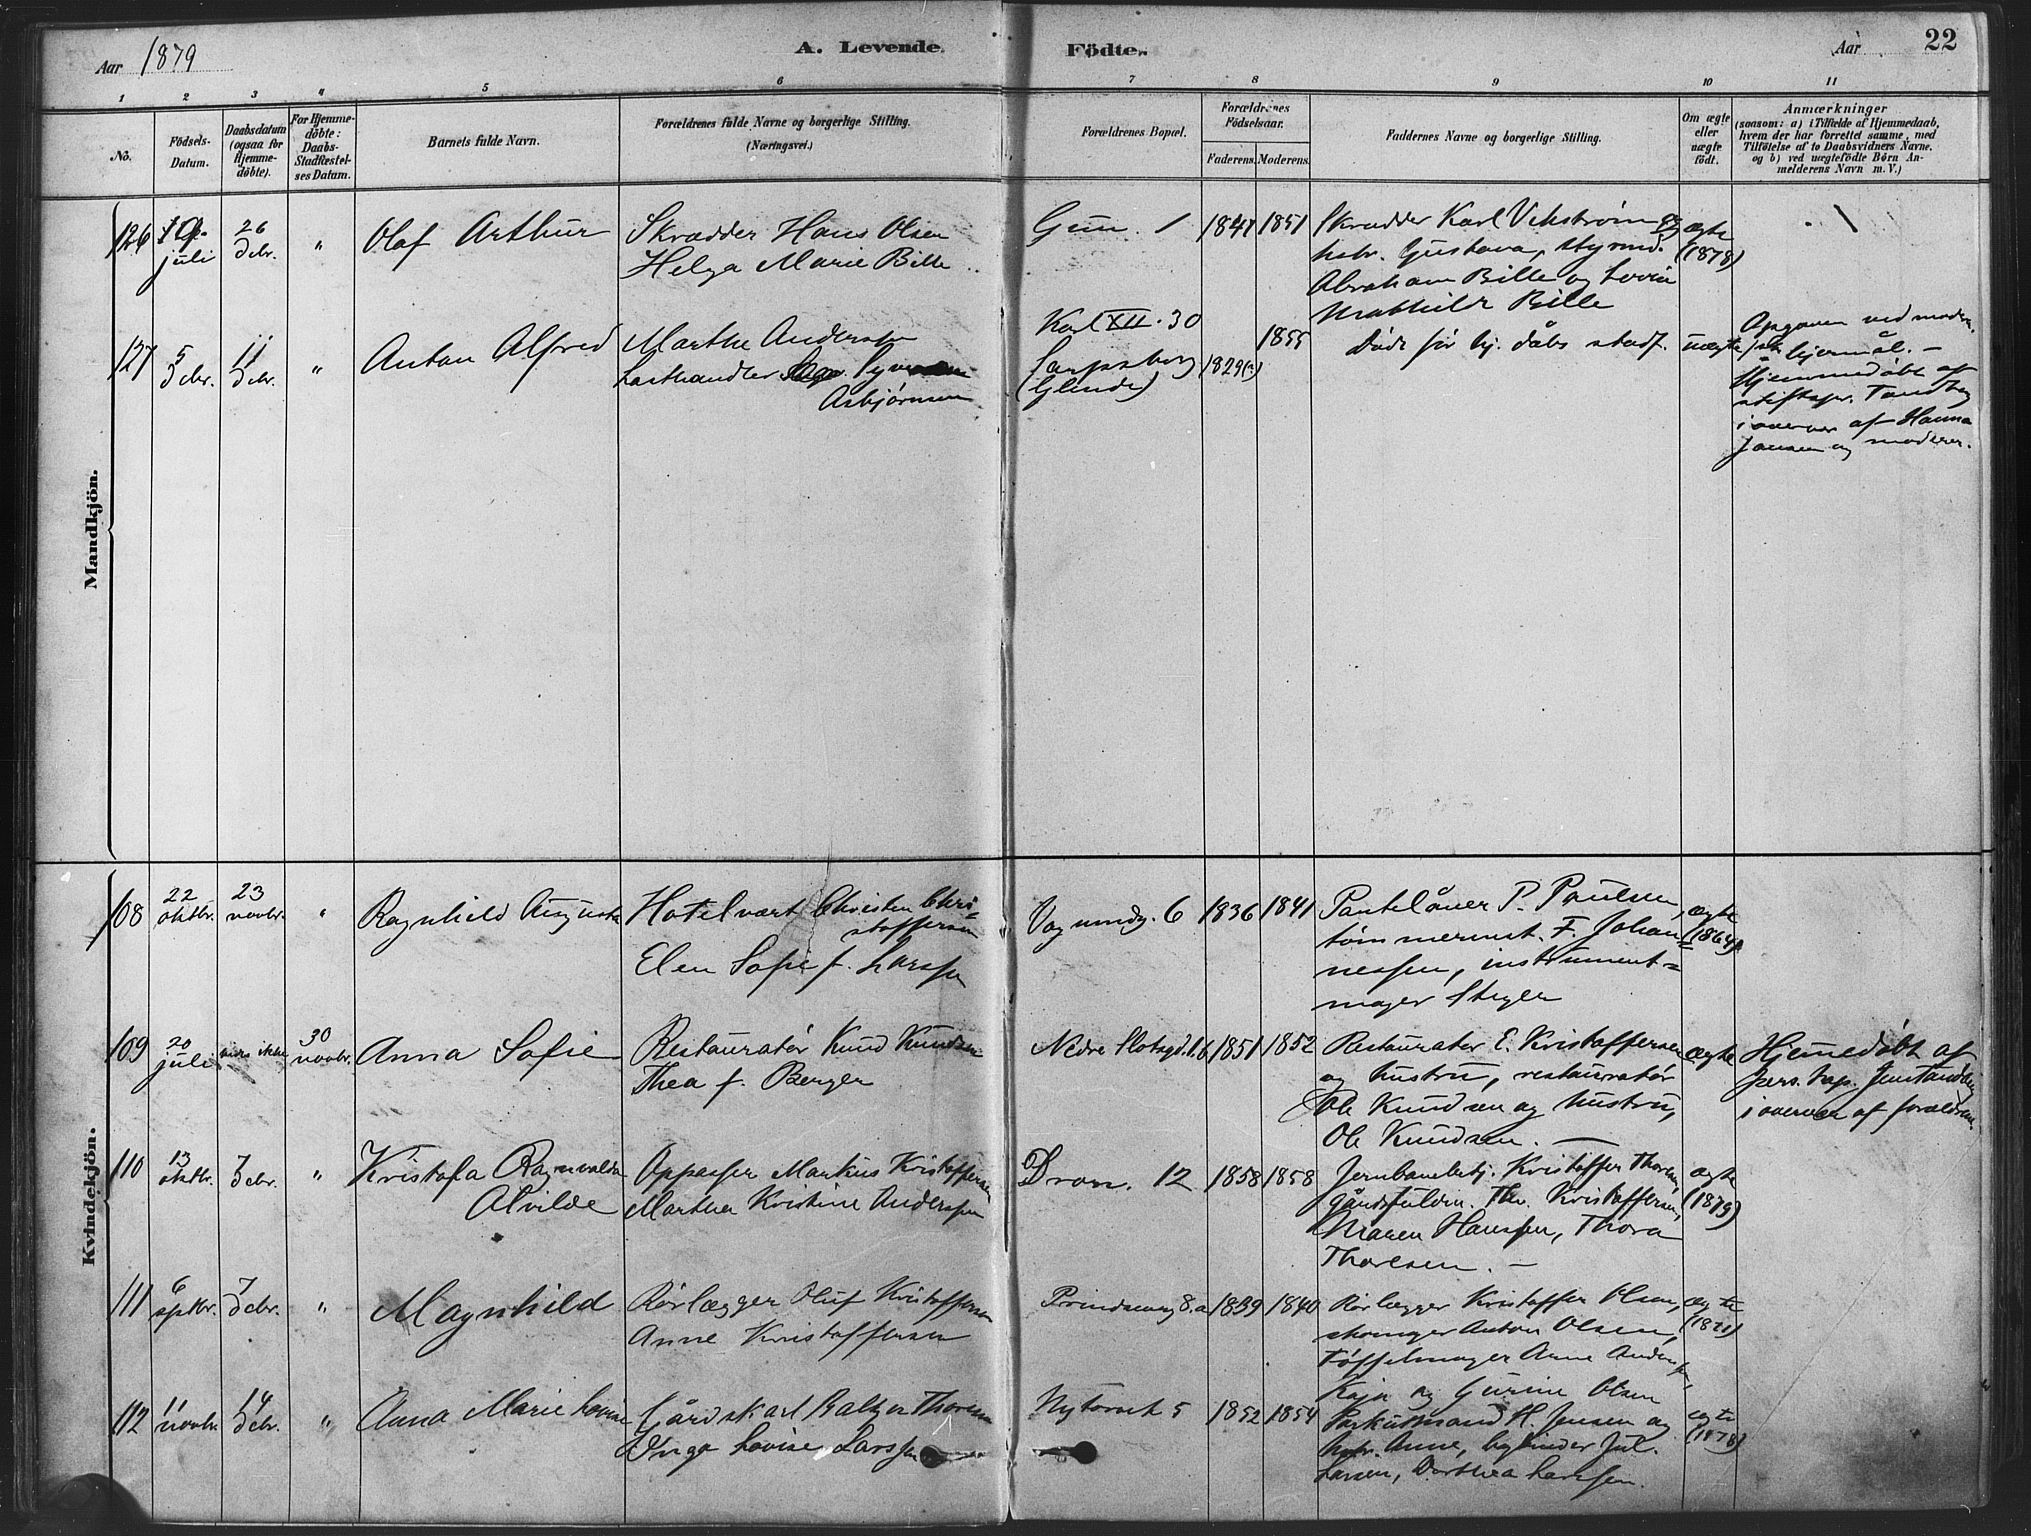 Aar 1879
A. Levende Födte.
Aar
22
1 2 3 4 5 6 7 8 9 10 11
No.
Födsels-Datum.
Daabsdatum (ogsaa for Hjemme-døbte).
For Hjemme-døbte: Daabs-Stadfæstel-ses Datum.
Barnets fulde Navn.
Forældrenes fulde Navne og borgerlige Stilling.
(Næringsvei.)
Forældrenes Bopæl.
Forældrenes Födselsaar.
Faderens. Moderens.
Faddernes Navne og borgerlige Stilling.
Om ægte eller uægte födt.
Anmærkninger
(saasom: a) i Tilfælde af Hjemmedaab,
hvem der har forrettet samme, med
Tilföielse af to Daabsvidners Navne.
og b) ved uægtefödte Börn An-
melderens Navn m. V.)
Mandkjön.
126 juli 26 debr. " Olaf Arthur
Skrædder Hans Olsen
Helga Marie Bille
1 1847 1851
Skrædder Karl Vikström og
hstr. Gustava, styrmd.
Abraham Bille og Lovise
Mathilde Bille
ægte (1878)
127 5 debr. 11 debr. " Anton Alfred
Marthe Andersen
Lasthandler Syver
Asbjørnsen
Karl XII. 30
Sarpsborg
(Glende)
1829 1855
Døde før hj. dåbs stadf.
uægte
Opgaven ved moderen
Hjemmedøbt af
i overvær af Hanna
Jansen og moderen.
Kvindekjön.
108 22 oktbr. 23 novbr. " Ragnhild Augusta
Hotelvært Christen Chri-
stoffersen
Elen Sofie f. Larssen
Vognmdg. 6 1836 1841
Pantelåner P. Paulsen,
tømmermst. F. Johan-
nessen, instrument-
mager Steger
ægte (1864)
109 20 juli 30 novbr. Anna Sofie
Restauratør Knud Knudsen
Thea f. Berger
Nedre Slotsgd. 16 1851 1852
Restauratør E. Kristoffersen
og hustru, restauratør
Ole Knudsen og hustru,
Ole Knudsen. —
ægte
Hjemedøbt af
i overvær af forældrene.
110 13 oktbr. 7 debr. " Kristofa Ragnvalda
Alvilde
Oppasser Markus Kristoffersen
Marthea Kristine Anderssen
Dron. 12 1858 1858
Jernbanebetj. Kristoffer Thoresen
Thv. Kristoffersen,
Maren Hanssen, Thora
Thoresen. —
ægte (1879)
111 6 septbr. 7 debr. " Magnhild
Rørlægger Oluf Kristoffersen
Anne Kristoffersen
Prindsensg 8.a 1839 1840
Rørlægger Kristoffer Olsen,
skomager Anton Olsen,
Tøffelmager Anne Anderssen,
Kaja og Gurine Olsen
ægte
112 11 novbr. 14 debr. " Anna Marie Lovise
Gårdskarl Balzer Thoresen
Inga Lovise Larssen
Nytorvet 5 1852 1854
H. Jensen og
hstr. Anne, bogbinder Jul.
Larsen, Dorthea Larssen.
ægte (1878)